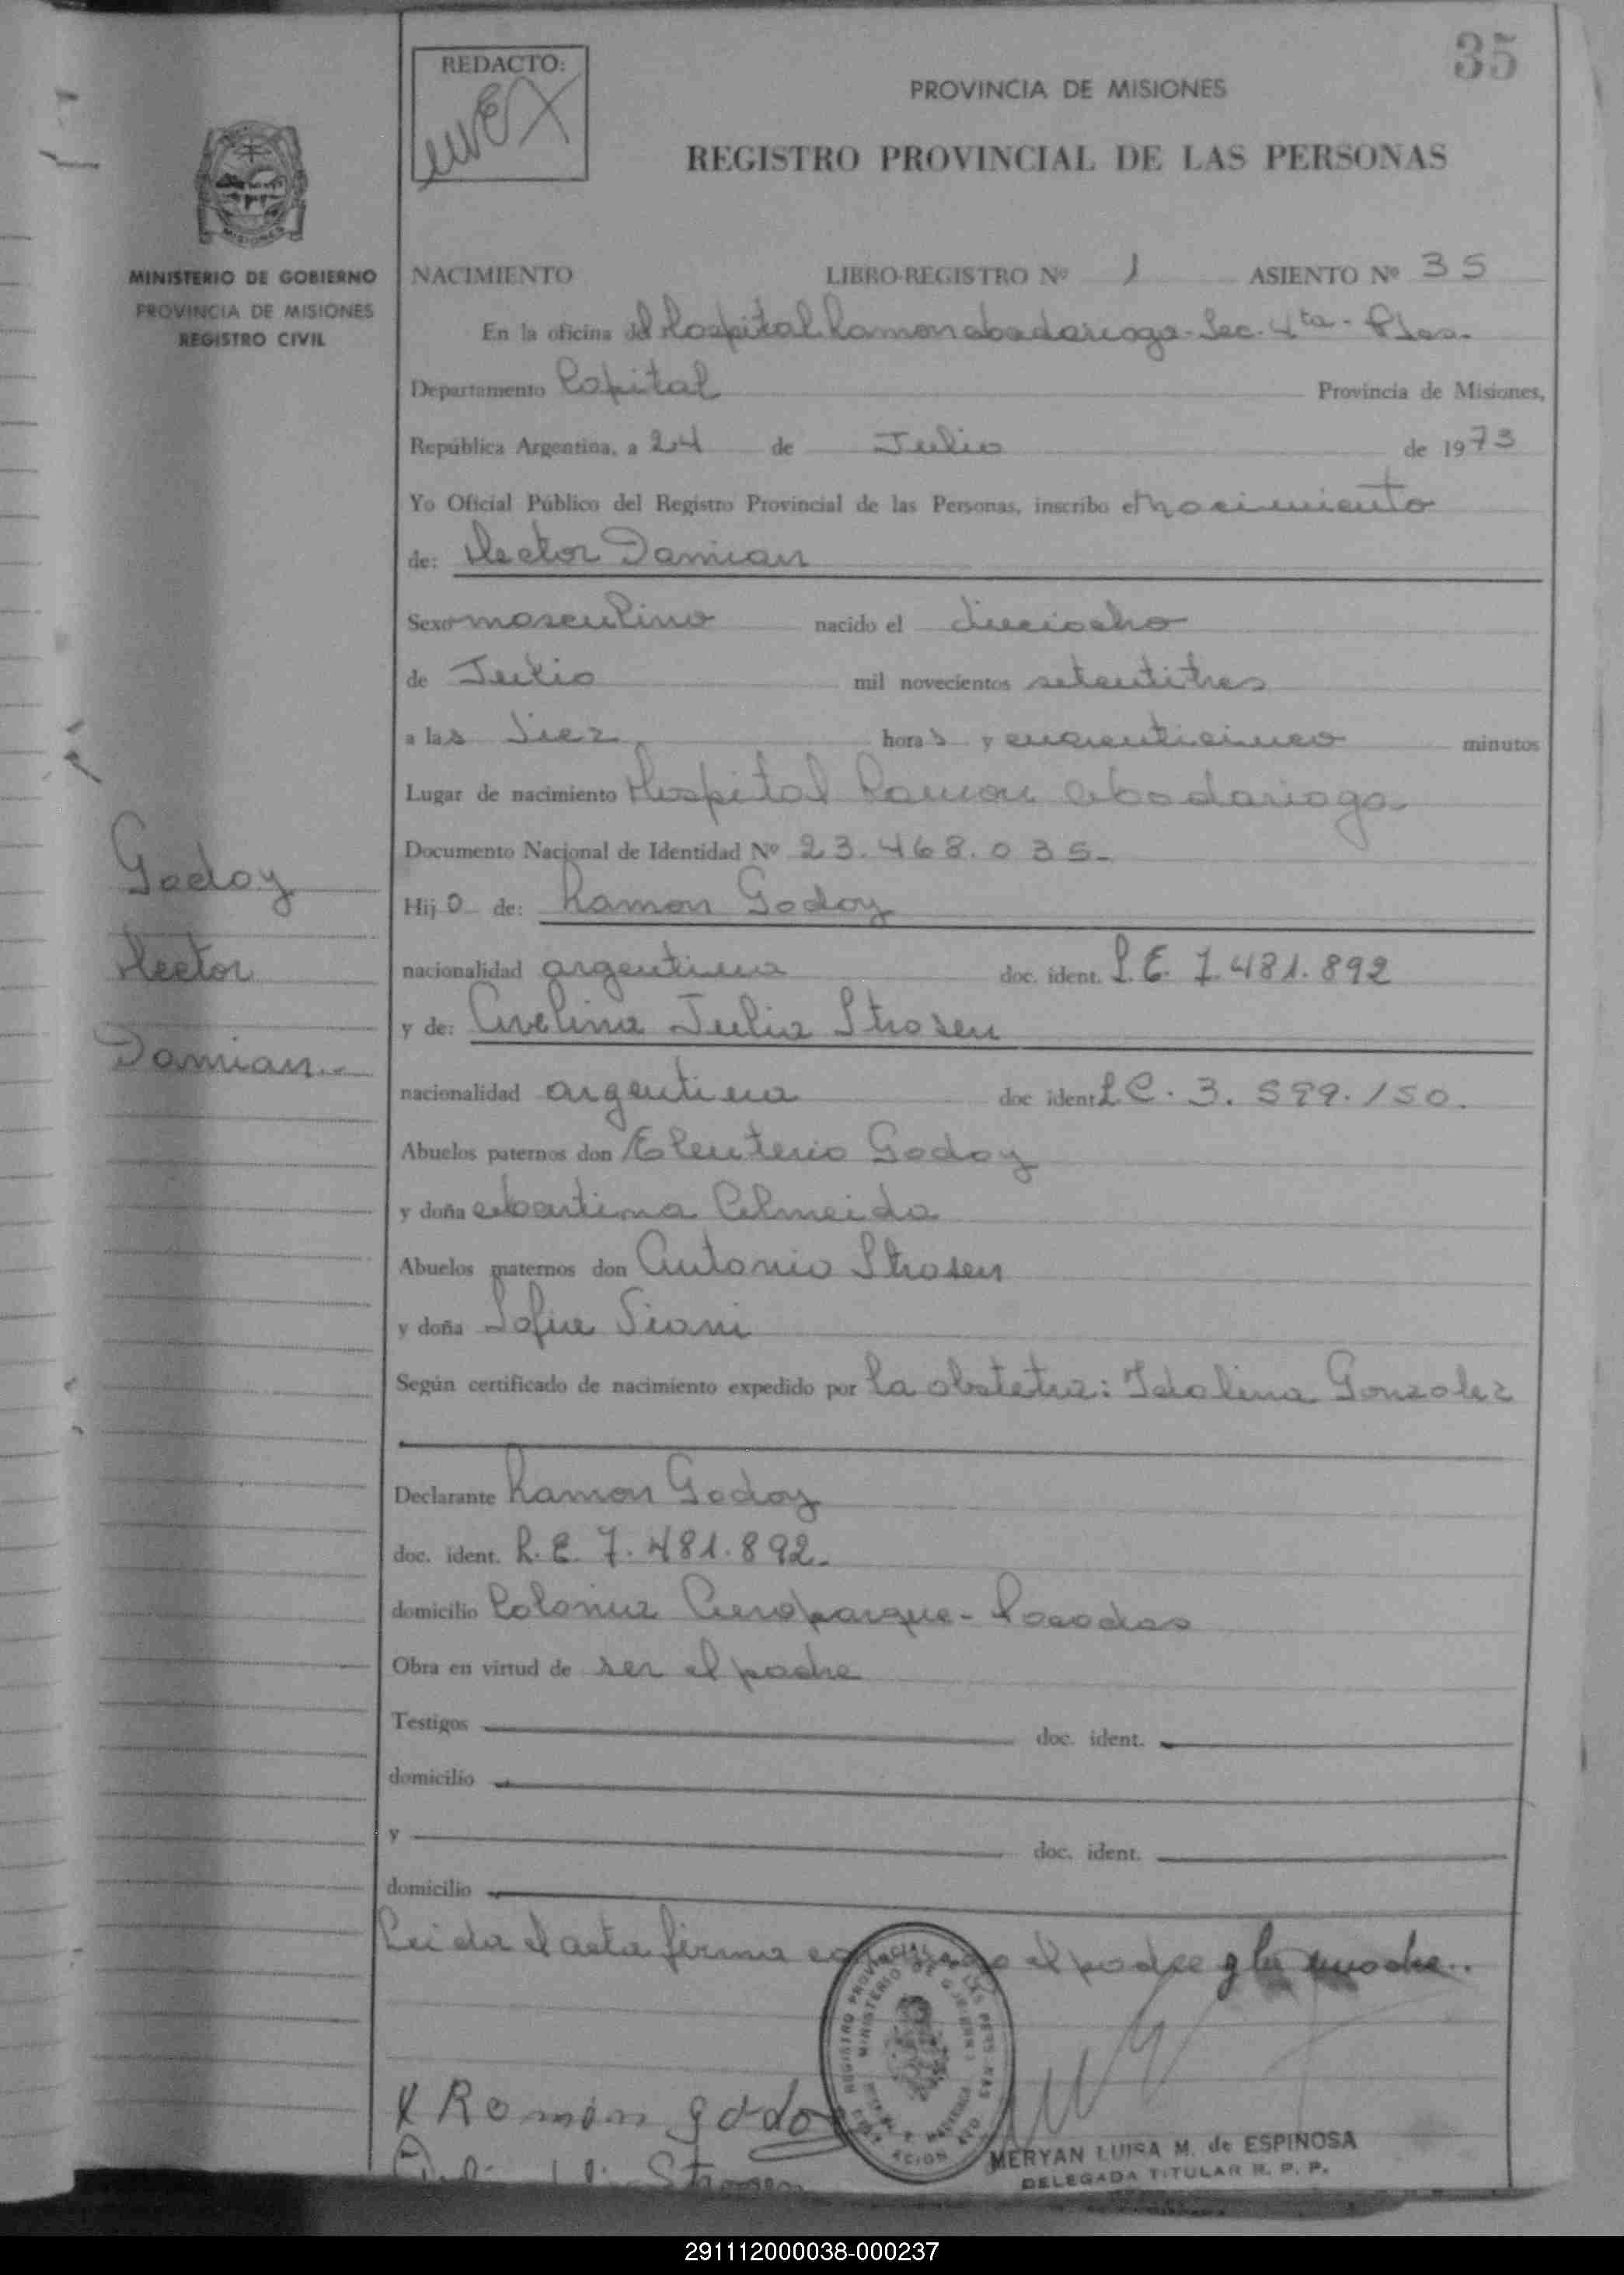 35
REDACTO:
PROVINCIA DE MISIONES
REGISTRO PROVINCIAL DE LAS PERSONAS
MISIONES
MINISTERIO DE GOBIERNO
PROVINCIA DE MISIONES
REGISTRO CIVIL
NACIMIENTO LIBRO-REGISTRO Nº 1 ASIENTO Nº 35
En la oficina del Hospital Ramon Madariaga - Sec. 4ta - Pdas.
Departamento Capital Provincia de Misiones,
República Argentina, a 24 de Julio de 1973
Yo Oficial Público del Registro Provincial de las Personas, inscribo el nacimiento
de: Hector Damian
Sexo masculino nacido el dieciocho
de Julio mil novecientos setentitres
a las diez horas y cuarenticinco minutos
Lugar de nacimiento Hospital Ramon Madariaga
Documento Nacional de Identidad Nº 23.468.035-
Hijo de: Ramon Godoy
nacionalidad argentina doc. ident. L.E. 7.481.892
y de: Avelina Julia Strosen
nacionalidad argentina doc ident L.C. 3.599.150.
Abuelos paternos don Eleuterio Godoy
y doña Martina Almeida
Abuelos maternos don Antonio Strosen
y doña Sofia
Según certificado de nacimiento expedido por la obstetra: Idolina Gonzalez
Declarante Ramon Godoy
doc. ident. L.E. 7.481.892-
domicilio Colonia Aeroparque - Posadas
Obra en virtud de ser el padre
Testigos doc. ident.
domicilio
y doc. ident.
domicilio
Leida el acta firma el padre y la madre..
Godoy
Hector
Damian..
X Ramón godoy
Strosen
REGISTRO PROVINCIAL DE LAS PERSONAS
MINISTERIO DE GOBIERNO
MERYAN LUISA M. de ESPINOSA
DELEGADA TITULAR R. P. P.
291112000038-000237